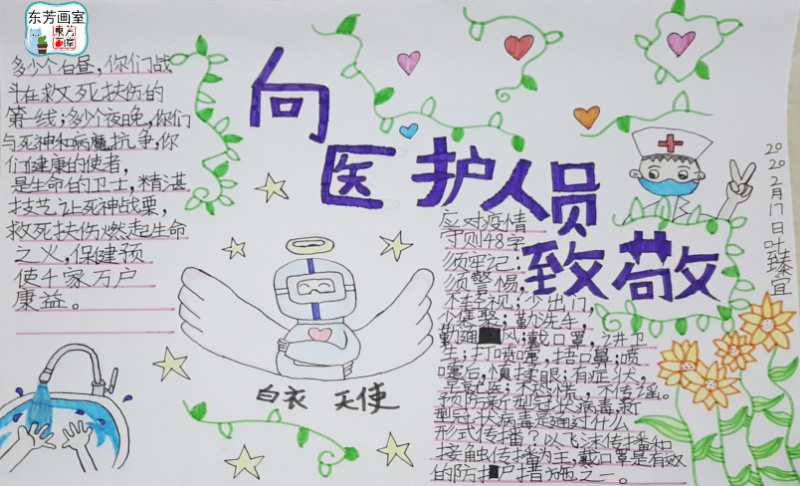 东芳画室
東方
画室
多少个白昼，你们战
斗在救死扶伤的
第一线；多少个夜晚，你们
与死神和病魔抗争，你
们健康的使者，
是生命的卫士，精湛
技艺让死神战栗，
救死扶伤燃起生命
之火，保健预
使千家万户
康益。
向
医护人员
致敬
2020年2月17日叶臻宜
白衣 天使
应对疫情
守则48字
须牢记：
须警惕，
不轻视；少出门，
少聚聚；勤洗手，
勤通风；戴口罩，讲卫
生；打喷嚏，捂口鼻；喷
嚏后，慎揉眼；有症状，
早就医；不恐慌，不传谣。
预防新型冠状病毒，新
型冠状病毒是通过什么
形式传播？以飞沫传播和
接触传播为主，戴口罩是有效
的防护措施之一。